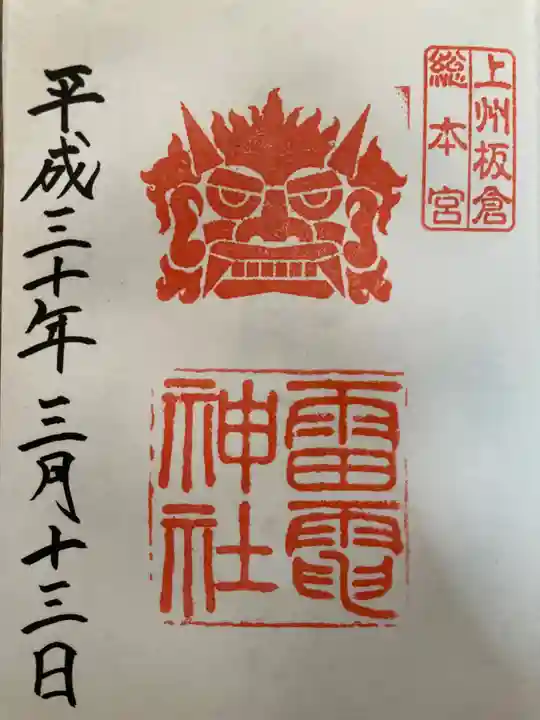 上州板倉
総本宮
雷電
神社
平成三十年三月十三日